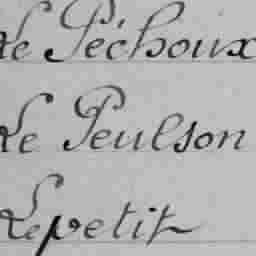 Le Péchoux
Le Peulson
Lepetit